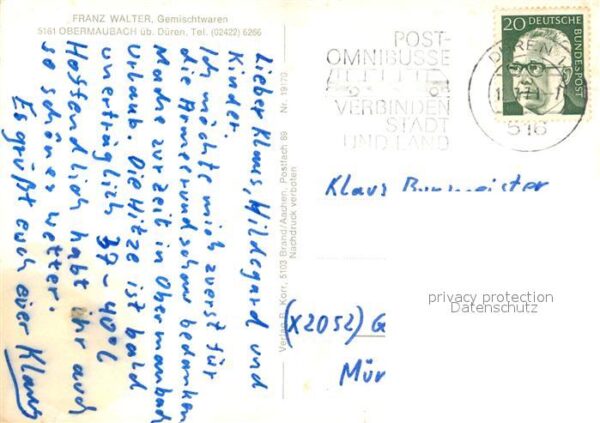 FRANZ WALTER, Gemischtwaren
5161 OBERMAUBACH üb. Düren, Tel. (02422) 6266
Lieber Klaus, Hildegard und
Kinder.
Ich möchte mich zuerst für
die Armeerundschau bedanken
Mache zur Zeit in Obermaubach
Urlaub. Die Hitze ist bald
unerträglich 37-40°C
Hoffendlich habt ihr auch
so schönes wetter.
Es grüßt euch euer Klaus
Verlag P. Korr, 5103 Brand/Aachen, Postfach 89 Nr. 19/79
Nachdruck verboten
POST-
OMNIBUSSE
VERBINDEN
STADT
UND LAND
DÜREN
516
20 DEUTSCHE
BUNDESPOST
Klaus
(X2052) G
Mür
privacy protection
Datenschutz